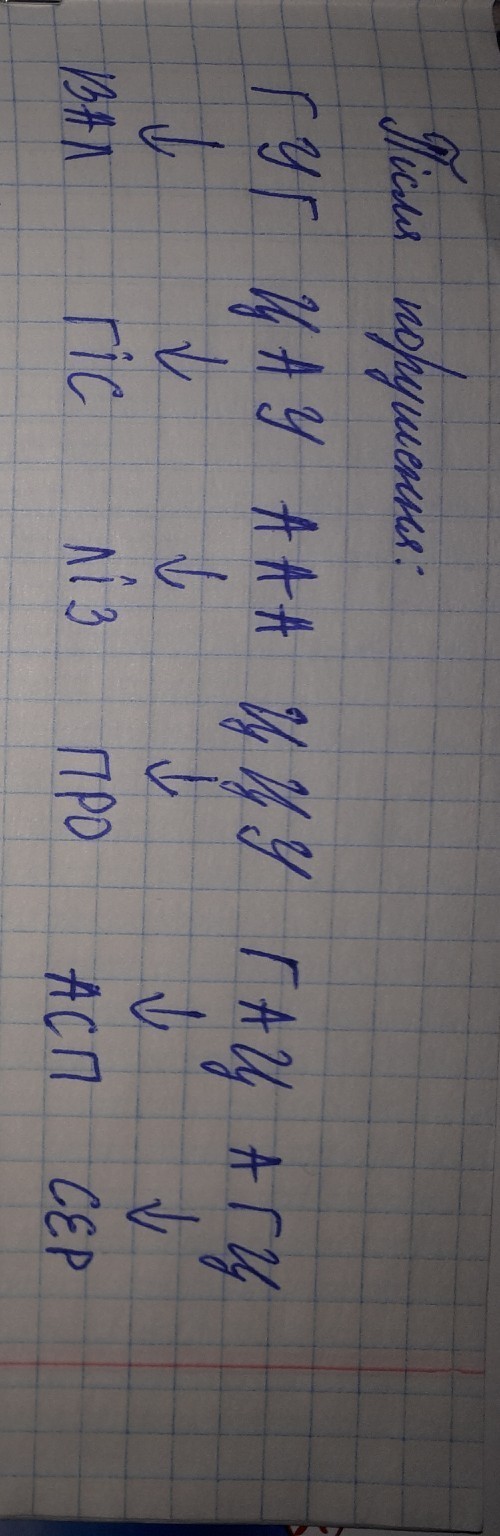 Після порушення:
ГУГ ЦАУ ААА ЦЦУ ГАЦ АГЦ
↓ ↓ ↓ ↓ ↓ ↓
ВАЛ ГІС ЛІЗ ПРО АСП СЕР